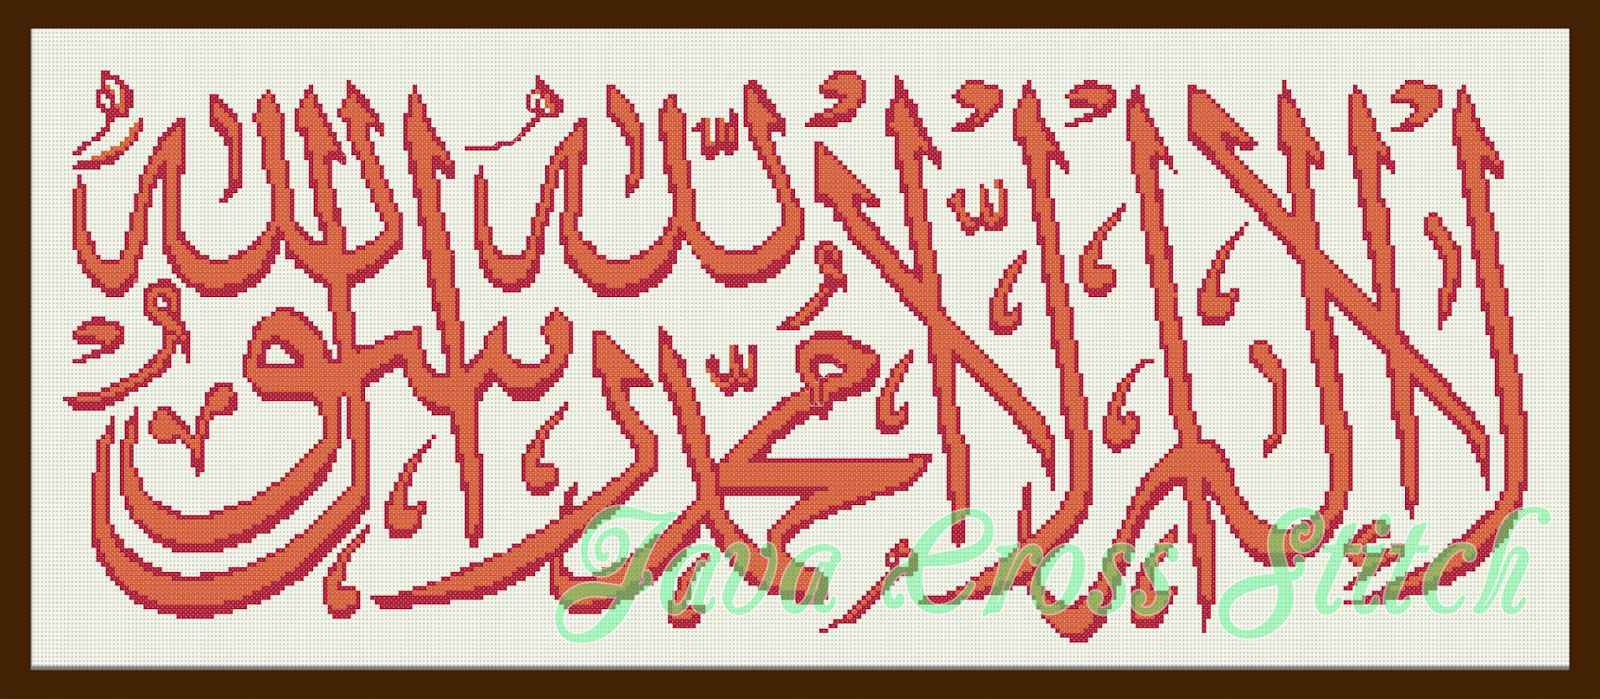 لا إله إلا الله محمد رسول الله
Java Cross Stitch